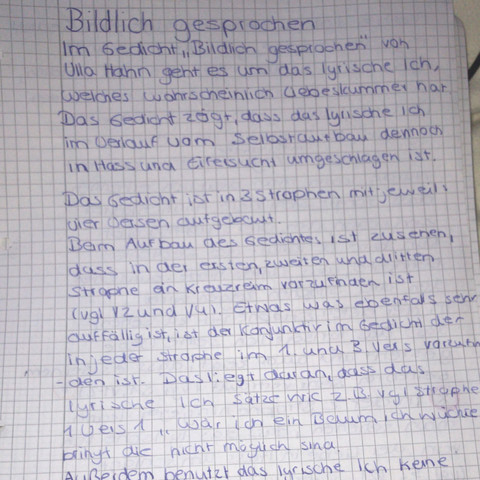 Bildlich gesprochen
Im Gedicht „Bildlich gesprochen" von
Ulla Hahn geht es um das lyrische Ich,
welches wahrscheinlich Liebeskummer hat
Das Gedicht zeigt, dass das lyrische Ich
im Verlauf vom Selbstaufbau dennoch
in Hass und Eifersucht umgeschlagen ist.
Das Gedicht ist in 3 Strophen mit jeweils
vier Versen aufgebaut.
Beim Aufbau des Gedichtes ist zu sehen,
dass in der ersten, zweiten und dritten
Strophe ein Kreuzreim vorzufinden ist
(vgl V2 und V4). Etwas was ebenfals sehr
auffällig ist, ist der Konjunktiv im Gedicht der
in jeder Strophe im 1. und 3. Vers
den ist. Das liegt daran, dass das
lyrische Ich Sätze wie z.B. vgl Strophe
1 Vers 1 „Wär ich ein Baum ich wüchse
bringt die nicht möglich sind.
Außerdem benutzt das lyrische Ich keine